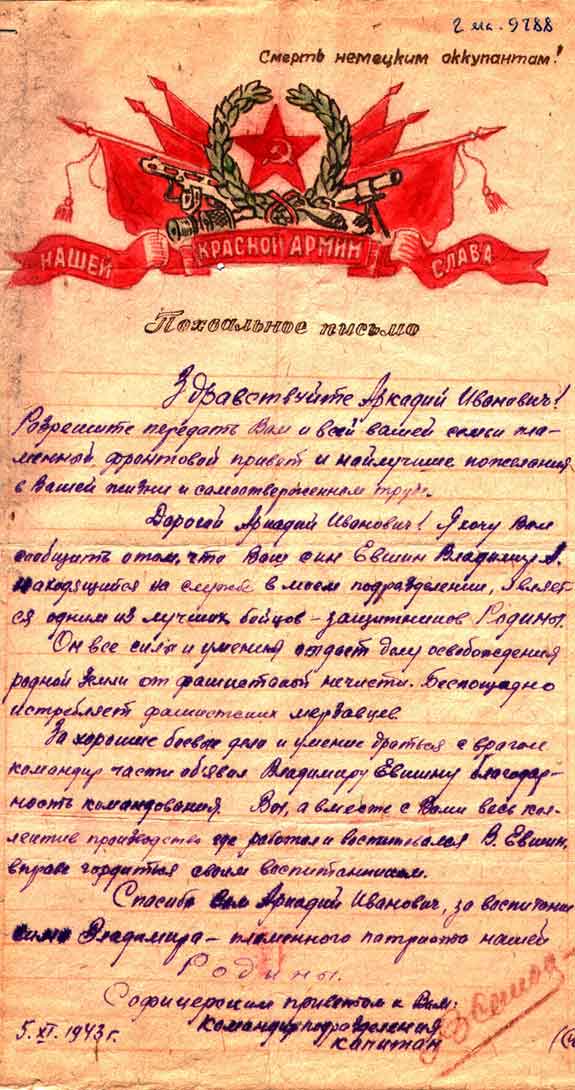 2 ма. 9788
Смерть немецким оккупантам!
НАШЕЙ КРАСНОЙ АРМИИ СЛАВА
Похвальное письмо
Здравствуйте Аркадий Иванович!
Разрешите передать Вам и всей вашей семьи пла-
менный фронтовой привет и наилучшие пожелания
в Вашей жизни и самоотверженном труде.
Дорогой Аркадий Иванович! Я хочу Вам
сообщить о том, что Ваш сын Евшин Владимир А.
находящийся на службе в моем подразделении, являет-
ся одним из лучших бойцов – защитников Родины.
Он все силы и умения отдает делу освобождения
родной земли от фашистской нечисти. Беспощадно
истребляет фашистских мерзавцев.
За хорошие боевые дела и умение драться с врагом
командир части объявил Владимиру Евшину благодар-
ность командования. Вы, а вместе с Вами весь кол-
лектив производства где работал и воспитывался В. Евшин,
вправе гордиться своим воспитанником.
Спасибо Вам Аркадий Иванович, за воспитание
сына Владимира – пламенного патриота нашей
Родины.
С офицерским приветом к Вам:
Командир подразделения
5.XI.1943 г. капитан